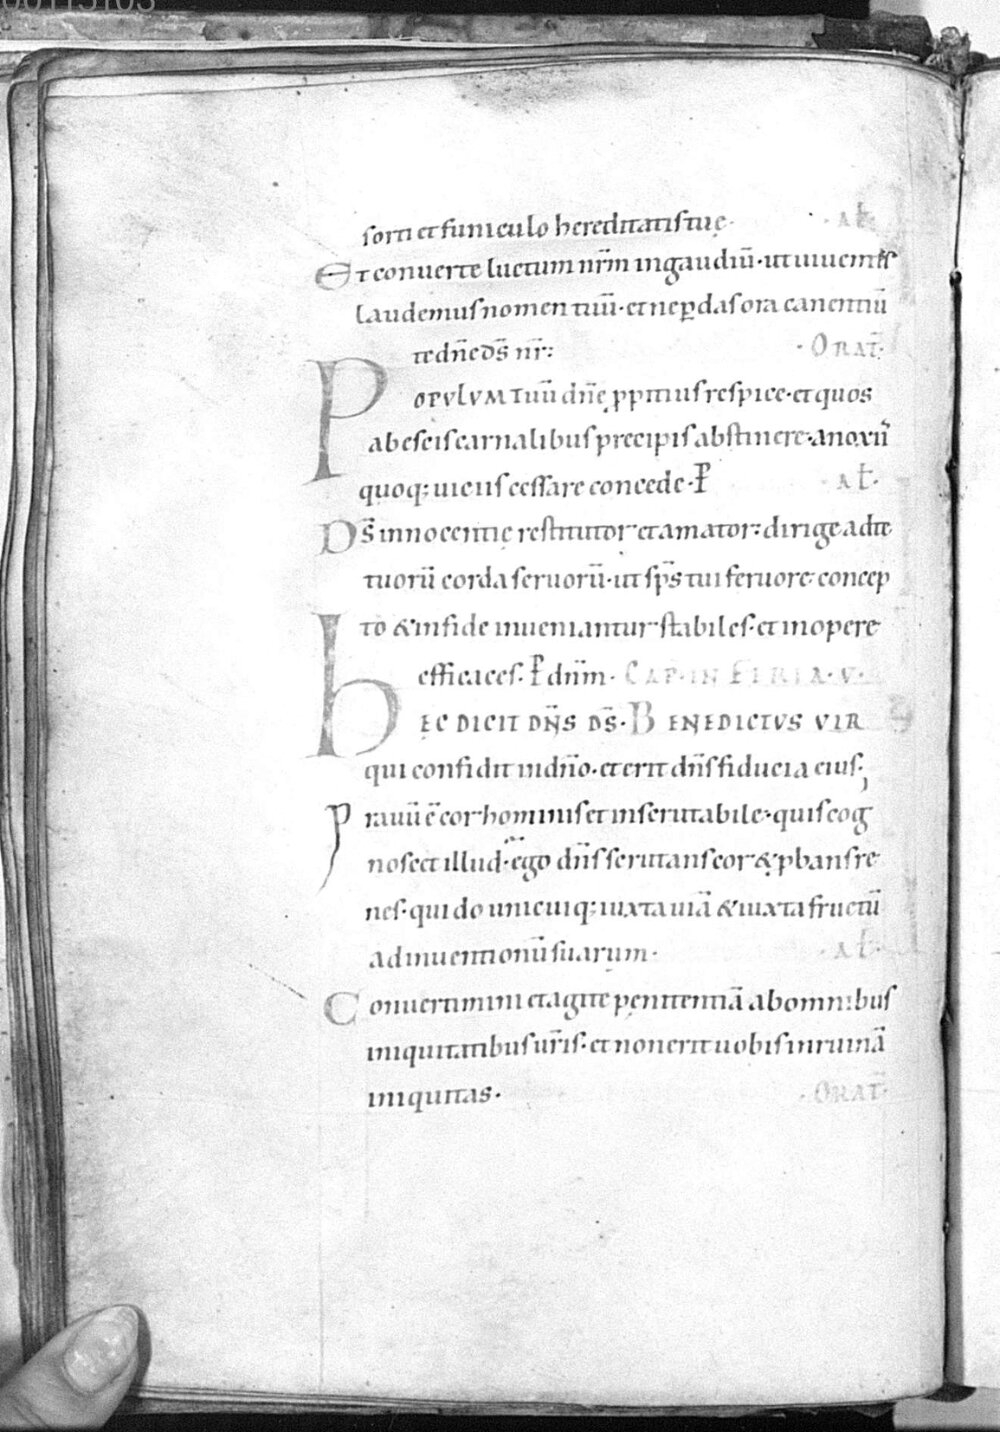 sorti et funiculo hereditatis tuę· · AL̄·
Et conuerte luctum nr̄m in gaudiū· ut uiuentes
laudemus nomen tuū· et ne ꝑdas ora canentiū
te dn̄e ds̄ nr̄: · ORAT̄·
POPULUM Tuū dn̄e ꝓpitius respice· et quos
ab escis carnalibus precipis abstinere· a noxiis
quoq; uiciis cessare concede· P̄ · AL̄·
Ds̄ innocentię restitutor et amator: dirige ad te
tuorū corda seruorū· ut sp̄s tui feruore concep
to & in fide inueniantur stabiles· et in opere
efficaces· P̄ dn̄m· CAP̄· IN FERIA· V·
HEC DICIT DN̄S DS̄· BENEDICTUS VIR
qui confidit in dn̄o· et erit dn̄s fiducia eius·
Prauū ē cor hominis et inscrutabile· quis cog
noscet illud· ego dn̄s scrutans cor & ꝓbans re
nes· qui do unicuiq; iuxta uiā & iuxta fructū
adinuentionū suarum· · AL̄·
Conuertimini et agite penitentiā ab omnibus
iniquitatibus ur̄is· et non erit uobis in ruinā
iniquitas· · ORAT̄·